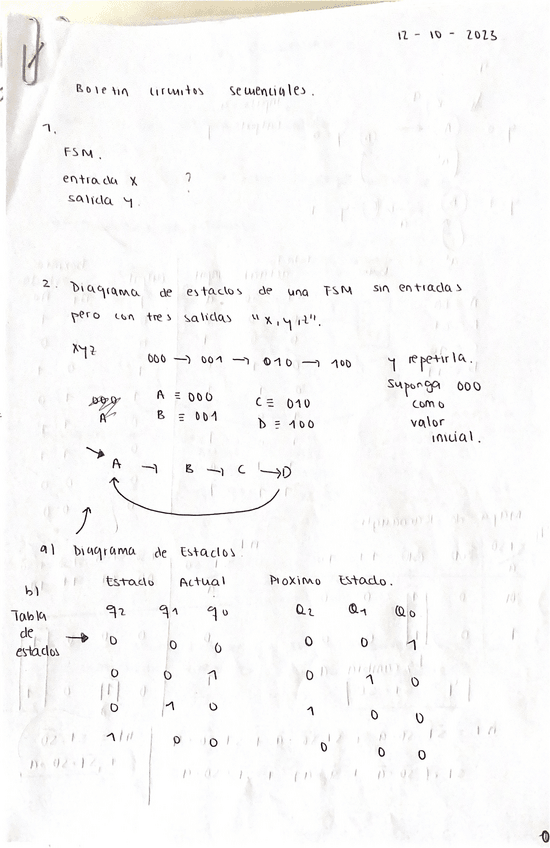 12 - 10 - 2023
Boletin circuitos secuenciales.
1.
FSM.
entrada x ?
salida y.
2. Diagrama de estados de una FSM sin entradas
pero con tres salidas "x, y, z".
xyz 000 → 001 → 010 → 100 y repetirla.
Suponga 000
como
valor
inicial.
A ≡ 000 C ≡ 010
B ≡ 001 D ≡ 100
→ A → B → C → D
a) Diagrama de Estados.
b) Estado Actual Proximo Estado.
Tabla de estados → q2 q1 q0 Q2 Q1 Q0
0 0 0 0 0 1
0 0 1 0 1 0
0 1 0 1 0 0
1 0 0 0 0 0